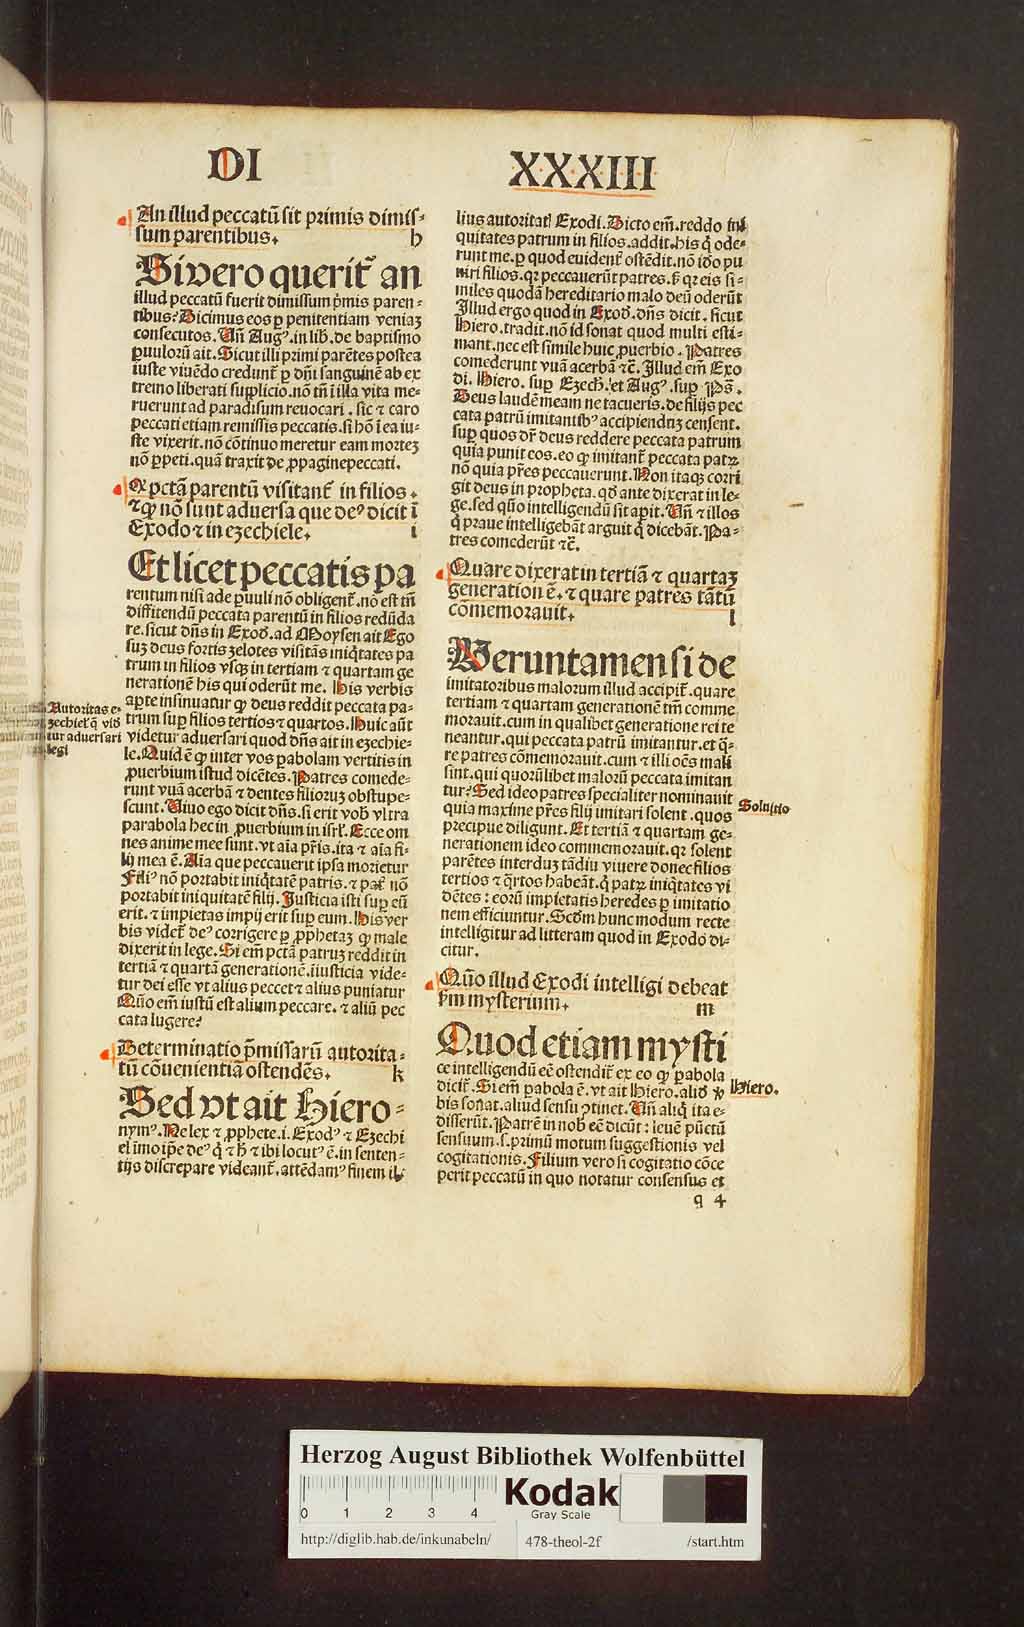 DI XXXIII
An illud peccatū sit primis dimis-
sum parentibus. h
Si vero querit᷑ an
illud peccatū fuerit dimissum p̄mis paren-
tibus? Dicimus eos ꝑ penitentiam veniaꝫ
consecutos. Vn̄ Augꝰ. in lib. de baptismo
ꝑuulorū ait. Sicut illi primi parētes postea
iuste viuēdo credunt᷑ ꝑ dn̄i sanguinē ab ex
tremo liberati supplicio. nō tn̄ ī illa vita me-
ruerunt ad paradisum reuocari. sic ⁊ caro
peccati etiam remissis peccatis. si hō ī ea iu-
ste vixerit. nō cōtinuo meretur eam morteꝫ
nō ꝑpeti. quā traxit de ꝓpagine peccati.
Ꝙ pctā parentū visitant᷑ in filios.
⁊ ꝙ nō sunt aduersa que deꝰ dicit ī
Exodo ⁊ in ezechiele. i
Et licet peccatis pa
rentum nisi ade ꝑuuli nō obligent᷑. nō est tn̄
diffitendū peccata parentū in filios redūda
re. sicut dn̄s in Exod. ad Moysen ait Ego
suꝫ deus fortis zelotes visitās iniq̇tates pa
trum in filios vsqꝫ in tertiam ⁊ quartam ge
nerationē his qui oderūt me. His verbis
aꝑte insinuatur ꝙ deus reddit peccata pa-
trum suꝑ filios tertios ⁊ quartos. Huic aūt
videtur aduersari quod dn̄s ait in ezechie-
le. Quid ē ꝙ inter vos ꝑabolam vertitis in
ꝓuerbium istud dicētes. Patres comede-
runt vuā acerbā ⁊ dentes filioruꝫ obstupe-
scunt. Viuo ego dicit dn̄s. si erit vob̄ vltra
parabola hec in ꝓuerbium in isrl̄. Ecce om
nes anime mee sunt. vt aīa pr̄is. ita ⁊ aīa fi-
lij mea ē. Aīa que peccauerit ipsa morietur
Filiꝰ nō portabit iniq̇tatē patris. ⁊ pat᷑ nō
portabit iniquitatē filij. Justicia isti suꝑ eū
erit. ⁊ impietas impij erit suꝑ eum. His ver
bis videt᷑ deꝰ corrigere ꝑ ꝓphetaꝫ ꝙ male
dixerit in lege. Si em̄ pctā patruꝫ reddit in
tertiā ⁊ quartā generationē. iiusticia vide-
tur dei esse vt alius peccet ⁊ alius puniatur
Quō em̄ iustū est alium peccare. ⁊ aliū pec
cata lugere?
Determinatio p̄missarū autorita-
tū cōuenientia ostendēs. k
Sed vt ait Hiero-
nymꝰ. Ne lex ⁊ ꝓphete .i. Exodꝰ ⁊ Ezechi
el īmo ip̄e deꝰ q̇ ⁊ h̄ ⁊ ibi locutꝰ ē. in senten-
tijs discrepare videant᷑. attēdamꝰ finem il-
Autoritas e-
zechiel' q̄ vid
tur aduersari
legi
lius autoritat᷑ Exodi. Dicto em̄. reddo ini
quitates patrum in filios. addit. his q̇ ode-
runt me. ꝑ quod euident᷑ ostēdit. nō id̄o pu
niri filios. qꝛ peccauerūt patres. sꝫ qꝛ eis si-
miles quodā hereditario malo deū oderūt
Illud ergo quod in Exod. dn̄s dicit. sicut
Hiero. tradit. nō id sonat quod multi esti-
mant. nec est simile huic ꝓuerbio. Patres
comederunt vuā acerbā ⁊c̄. Illud em̄ Exo
di. Hiero. suꝑ Ezech. et Augꝰ. suꝑ Ps̄.
Deus laudē meam ne tacueris. de filijs pec
cata patrū imitantibꝰ accipienduꝫ censent.
suꝑ quos dr̄ deus reddere peccata patrum
quia punit eos. eo ꝙ imitant᷑ peccata patꝝ
nō quia pr̄es peccauerunt. Non itaqꝫ corri
git deus in propheta. qd̄ ante dixerat in le-
ge. sed quō intelligendū sit aꝑit. Vn̄ ⁊ illos
q̇ praue intelligebāt arguit q̇ dicebāt. Pa-
tres comederūt ⁊c̄.
Quare dixerat in tertiā ⁊ quartaꝫ
generationē. ⁊ quare patres tātū
cōmemorauit. l
Veruntamen si de
imitatoribus malorum illud accipit᷑. quare
tertiam ⁊ quartam generationē tm̄ comme
morauit. cum in qualibet generatione rei te
neantur. qui peccata patrū imitantur. et q̄-
re patres cōmemorauit. cum ⁊ illi oēs mali
sint. qui quorūlibet malorū peccata imitan
tur? Sed ideo patres specialiter nominauit
quia maxime pr̄es filij imitari solent. quos
precipue diligunt. Et tertiā ⁊ quartam ge-
nerationem ideo commemorauit. qꝛ solent
parētes interduꝫ tādiu viuere donec filios
tertios ⁊ q̇rtos habeāt. q̇ patꝝ iniq̇tates vi
dētes: eorū impietatis heredes ꝑ imitatio
nem efficiuntur. Scd̄m hunc modum recte
intelligitur ad litteram quod in Exodo di-
citur.
Solutio
Quō illud Exodi intelligi debeat
ẜm mysterium. m
Quod etiam mysti
ce intelligendū eē ostendit᷑ ex eo ꝙ ꝑabola
dicit᷑. Si em̄ ꝑabola ē. vt ait Hiero. aliud ver
bis sonat. aliud sensu ꝯtinet. Vn̄ aliq̇ ita e-
disserūt. Patrē in nob̄ eē dicūt: leuē pūctū
sensuum. s. primū motum suggestionis vel
cogitationis. Filium vero si cogitatio cōce
perit peccatū in quo notatur consensus et
Hiero.
q 4
Herzog August Bibliothek Wolfenbüttel
0 1 2 3 4
Kodak
Gray Scale
http://diglib.hab.de/inkunabeln/ 478-theol-2f /start.htm